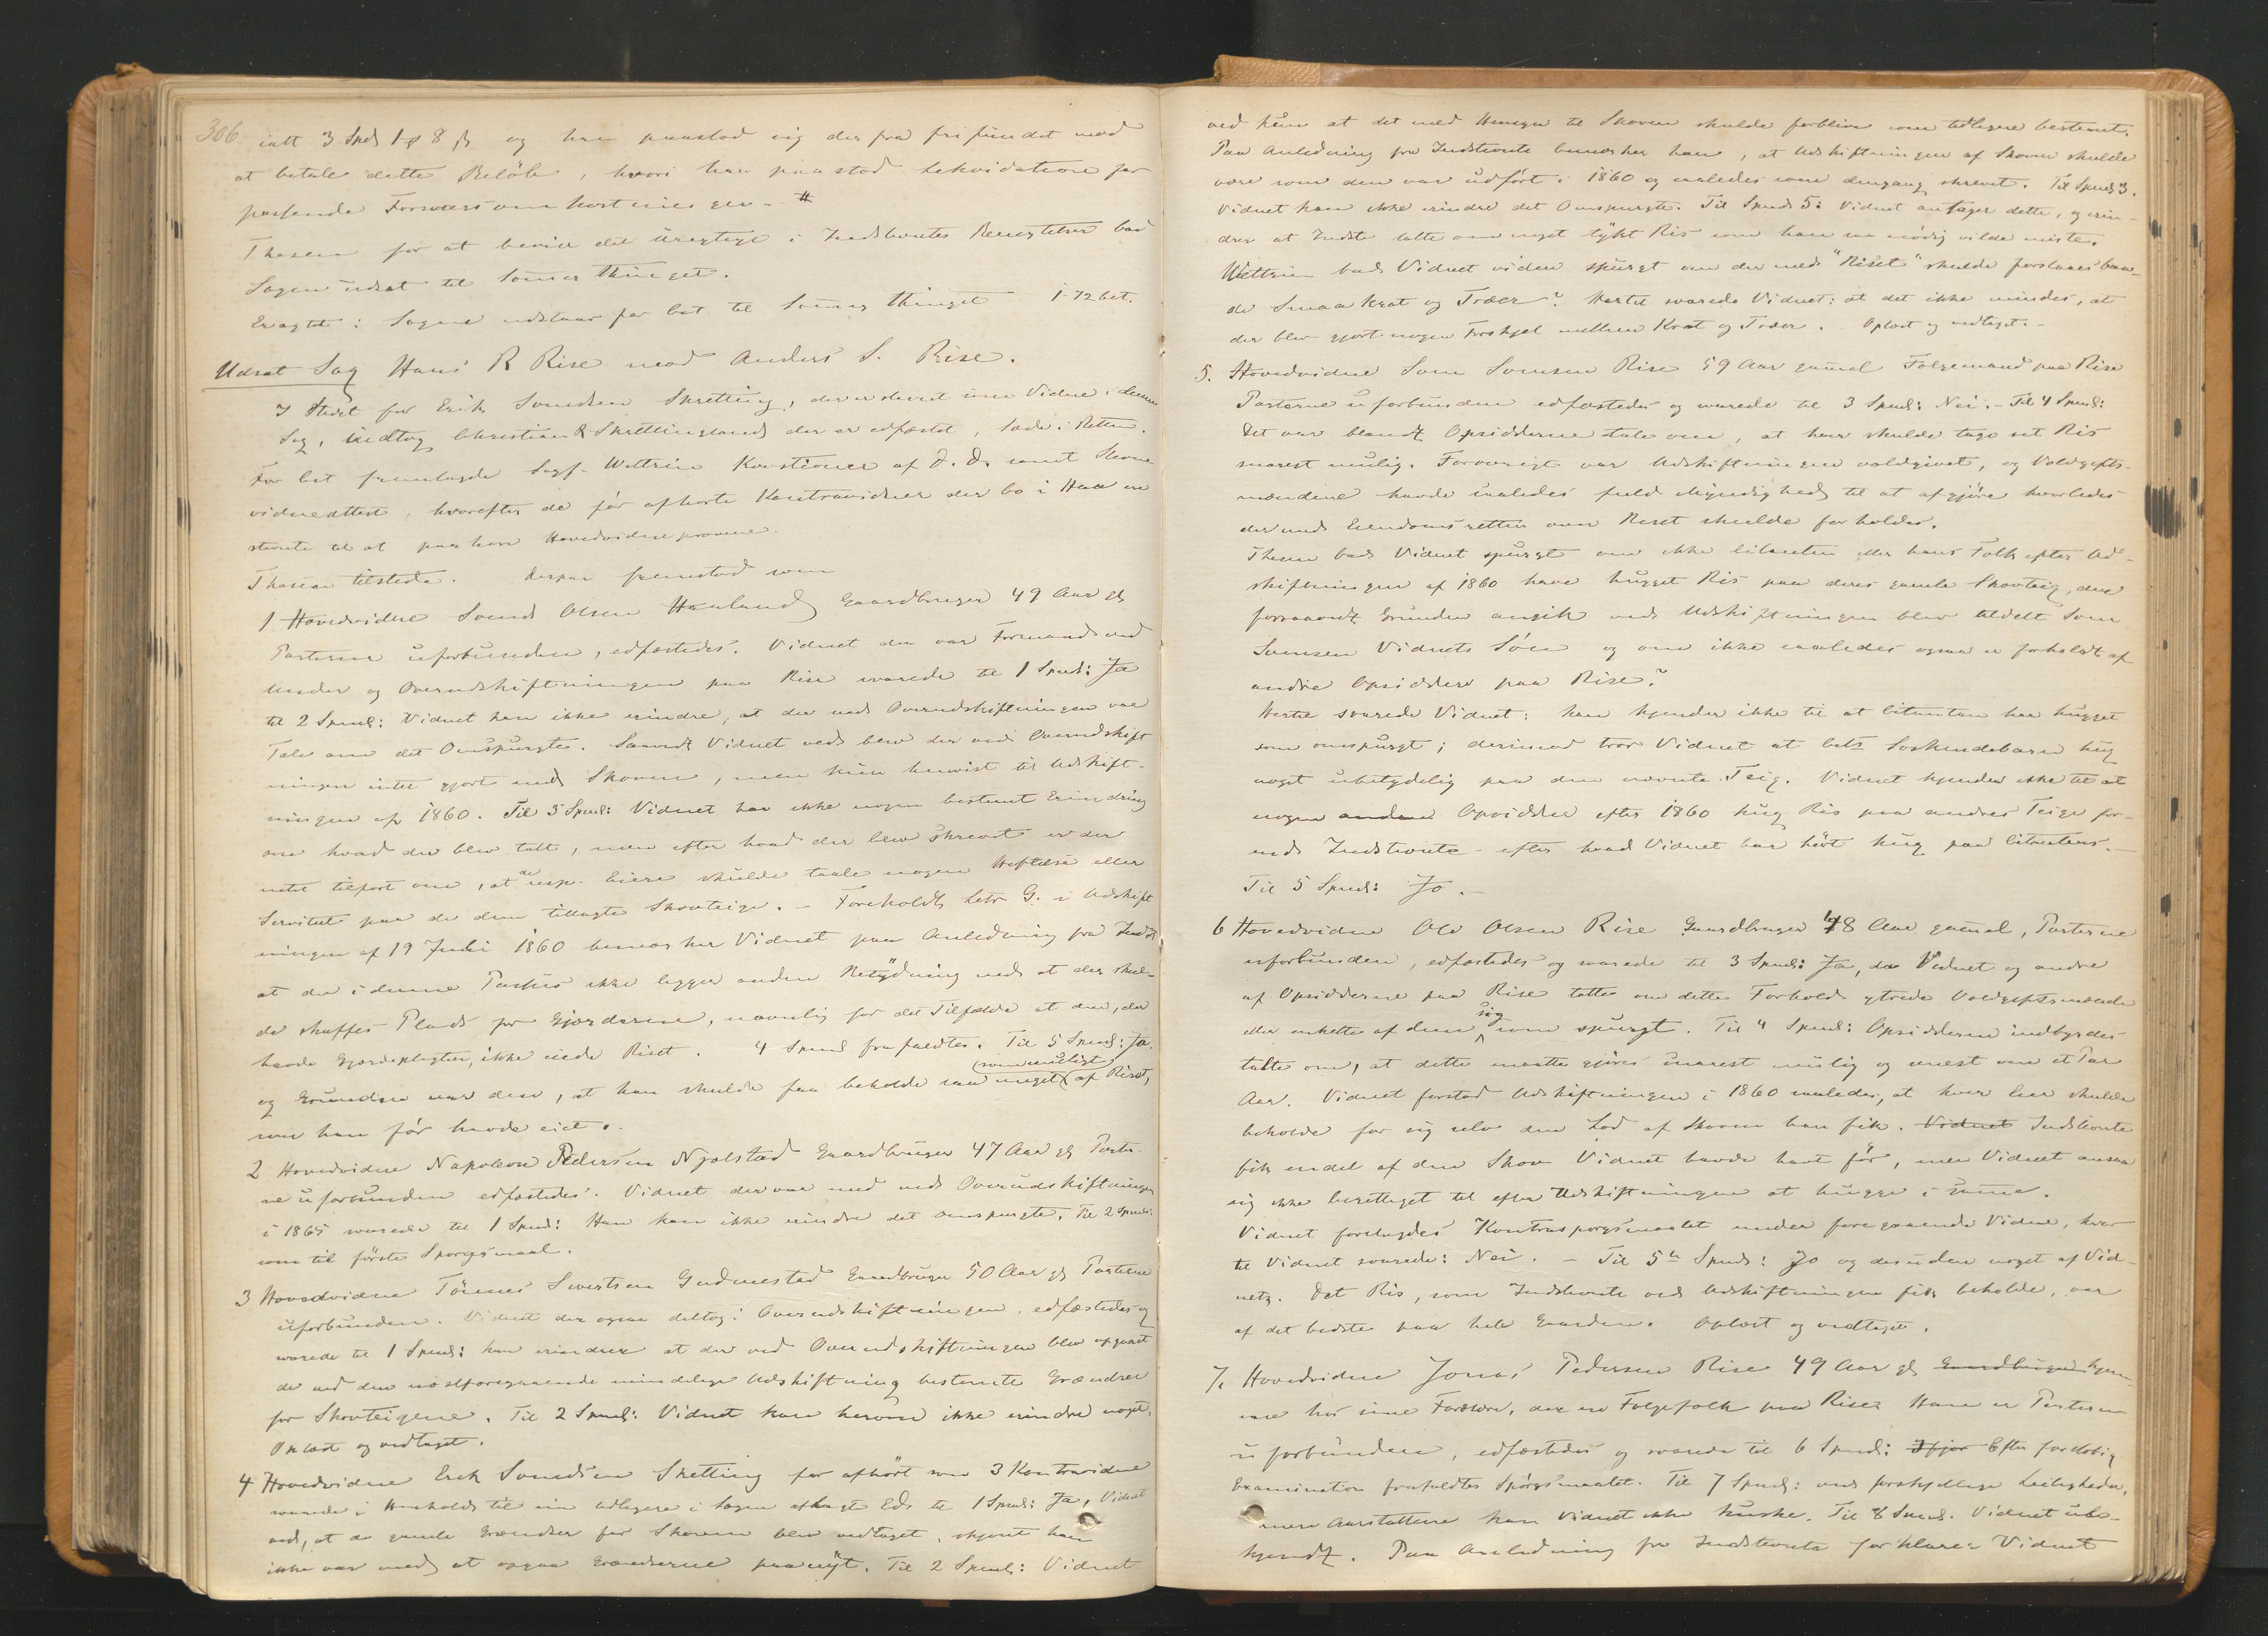 306
ialt 3 Spd 1 # 8 ß og han paastod sig derfra frifundet mod
at betale dette Beløb, hvori han paastod Lekvidation for
passende Forsvarsomkostninger. #
Thesen for at bevise det urigtige i Indstevntes Benegtelser bad
Sagen udsat til Sommerthinget.
Eragtet: Sagen udstaar par bet til Sommerthinget 1-72 bet.
Udsat Sag Hans R Rise mod Anders S. Rise.
I Stedet for Erik Svendsen Skretting, der er stevnt som Vidne i denne
Sag, indtog Christian R Skrettingland der er edfæstet, Sæde i Retten.
For Cit fremlagde Sagf. Wettrin Kvæstioner af D. D. samt Stevne
vidneattest, hvorefter de før afhørte Kontravidner der bo i Haa er
stevnte til at paahøre Hovedvidneprovene.
Thesen tilstede. Derpaa fremstod som
1 Hovedvidne Svend Olsen Haaland Gaardbruger 49 Aar gl
Parterne uforbunden, edfæstedes. Vidnet der var Formand ved
Under og Overudskiftningen paa Rise svarede til 1 Spml: Ja
til 2 Spml: Vidnet kan ikke erindre, at der ved Overudskiftningen var
Tale om det Omspurgte. Saavidt Vidnet ved blev der ved Overudskift
ningen intet gjort med Skoven, men kun henvist til Udskift-
ningen af 1860. Til 3 Spml: Vidnet har ikke nogen bestemt Erindring
om hvad der blev talt, men efter hvad der blev skrevet er der
intet tilført om, at de resp. Eiere skulde taale nogen Heftelse eller
Servitut paa de dem tillagte Skovteiger. – Foreholdt Letr G. i Udskift
ningen af 19 Juli 1860 bemærker Vidnet paa Anledning fra Indst
at der i denne Passus ikke ligger anden Betydning end at der skul-
de skaffes Plads for Gjerderne, navnlig for det Tilfælde at den, der
havde Gjerdepligten, ikke eiede Riset. 4 Spml frafaldtes. Til 5 Spml: Ja.
og Grunden var den, at han skulde faa beholde saa meget (som muligt) af Riset,
som han før havde eiet.
2 Hovedvidne Napoleon Pedersen Njølstad Gaardbruger 47 Aar gl Parter-
ne uforbunden edfæstedes. Vidnet der var med ved Overudskiftningen
i 1865 svarede til 1 Spml: Han kan ikke erindre det omspurgte. Til 2 Spml:
som til første Spørgsmaal.
3 Hovedvidne Tønnes Sivertsen Gudmestad Gaardbruger 50 Aar gl Parterne
uforbunden. Vidnet der ogsaa deltog i Overudskiftningen. edfæstedes og
svarede til 1 Spml: han erindrer at der ved Overudskiftningen blev opgaaet
de ved den næstforegaaende mindelige Udskiftning bestemte Grændser
for Skovteigene. Til 2 Spml: Vidnet kan herom ikke erindre noget.
Oplæst og vedtaget.
4 Hovedvidne Erik Svendsen Skretting før afhørt som 3 Kontravidne
svarede i Henhold til sin tidligere i Sagen aflagte Ed. til 1 Spml: Ja, Vidnet
ved, at de gamle Grændser for Skoven blev vedtaget, skjønt han
ikke var med at opgaa Grændserne paanyt. Til 2 Spml: Vidnet
ved kun at det med Hensyn til Skoven skulde forblive som tidligere bestemt.
Paa Anledning fra Indstevnte bemærker han, at Udskiftningen af Skoven skulde
være som den var udført i 1860 og saaledes som dengang skrevet. Til Spml 3.
Vidnet kan ikke erindre det Omspurgte. Til Spml 5: Vidnet antager dette, og erin-
drer at Indste talte om noget tykt Ris som han saa nødig vilde miste.
Wettrin bad Vidnet videre spurgt om der med "Riset" skulde forstaaes baa-
de Smaakrat og Træer? Hertil svarede Vidnet: at det ikke mindes, at
der blev gjort nogen Forskjel mellem Krat og Træer. Oplæst og vedtaget. –
5. Hovedvidne Sven Svensen Rise 59 Aar gammel Følgemand paa Rise
Parterne uforbunden edfæstedes og svarede til 3 Spml: Nei. – Til 4 Spml:
Det var blandt Opsidderne tale om, at hver skulde tage sit Ris
snarest mulig. Forøvrigt var Udskiftningen voldgivet, og Voldgifts-
mændene havde saaledes fuld Myndighed til at afgjøre hvorledes
der med Eiendomsretten over Riset skulde forholdes.
Thesen bad Vidnet spurgt om ikke Citanten eller hans Folk efter Ud-
skiftningen af 1860 have hugget Ris paa deres gamle Skovteig, der
forsaavidt Grunden angik ved Udskiftningen blev tildelt Sven
Svensen Vidnets Søn og om ikke saaledes ogsaa er forholdt af
andre Opsiddere paa Rise?
Hertil svarede Vidnet: han kjender ikke til at Citanten har hugget
som omspurgt; derimod tror Vidnet at Cits Søskendebarn hug
noget ubetydelig paa den nævnte Teig. Vidnet kjender ikke til at
nogen anden Opsidder efter 1860 hug Ris paa andres Teige for-
end Indstevnte efter hvad Vidnet har hørt hug paa Citantens. –
Til 5 Spml: Jo. –
6 Hovedvidne Ole Olsen Rise Gaardbruger 48 Aar gammel, Parterne
uforbunden, edfæstedes og svarede til 3 Spml: Ja, da Vidnet og andre
af Opsidderne paa Rise talte om dette Forhold ytrede Voldgiftsmændene
eller enkelte af dem sig som spurgt. Til 4 Spml: Opsidderne indbyrdes
talte om, at dette maatte gjøres snarest mulig og mest om et Par
Aar. Vidnet forstod Udskiftningen i 1860 saaledes, at hver Eier skulde
beholde for sig selv den Lod af Skoven han fik. Vidnet Indstevnte
fik endel af den Skov Vidnet havde havt før, men Vidnet ansaa
sig ikke berettiget til efter Udskiftningen at hugge i samme.
Vidnet forelagdes Kontraspørgsmaalet under foregaaende Vidne, hvor-
til Vidnet svarede: Nei. – Til 5te Spml: Jo og desuden noget af Vid-
nets. Det Ris, som Indstevnte ved Udskiftningen fik beholde, var
af det bedste paa hele Gaarden. Oplæst og vedtaget.
7. Hovedvidne Jonas Pedersen Rise 49 Aar gl Gaardbruger hjem-
me hos sine Forældre, der ere Følgefolk paa Rise. Han er Parterne
uforbunden, edfæstedes og svarede til 6 Spml: Ifjor Efter foreløbig
Examination frafaldtes Spørgsmaalet. Til 7 Spml: ved forskjellige Leiligheder,
men Aarstallene kan Vidnet ikke huske. Til 8 Spml. Vidnet ube-
kjendt. Paa Anledning fra Indstevnte forklarer Vidnet